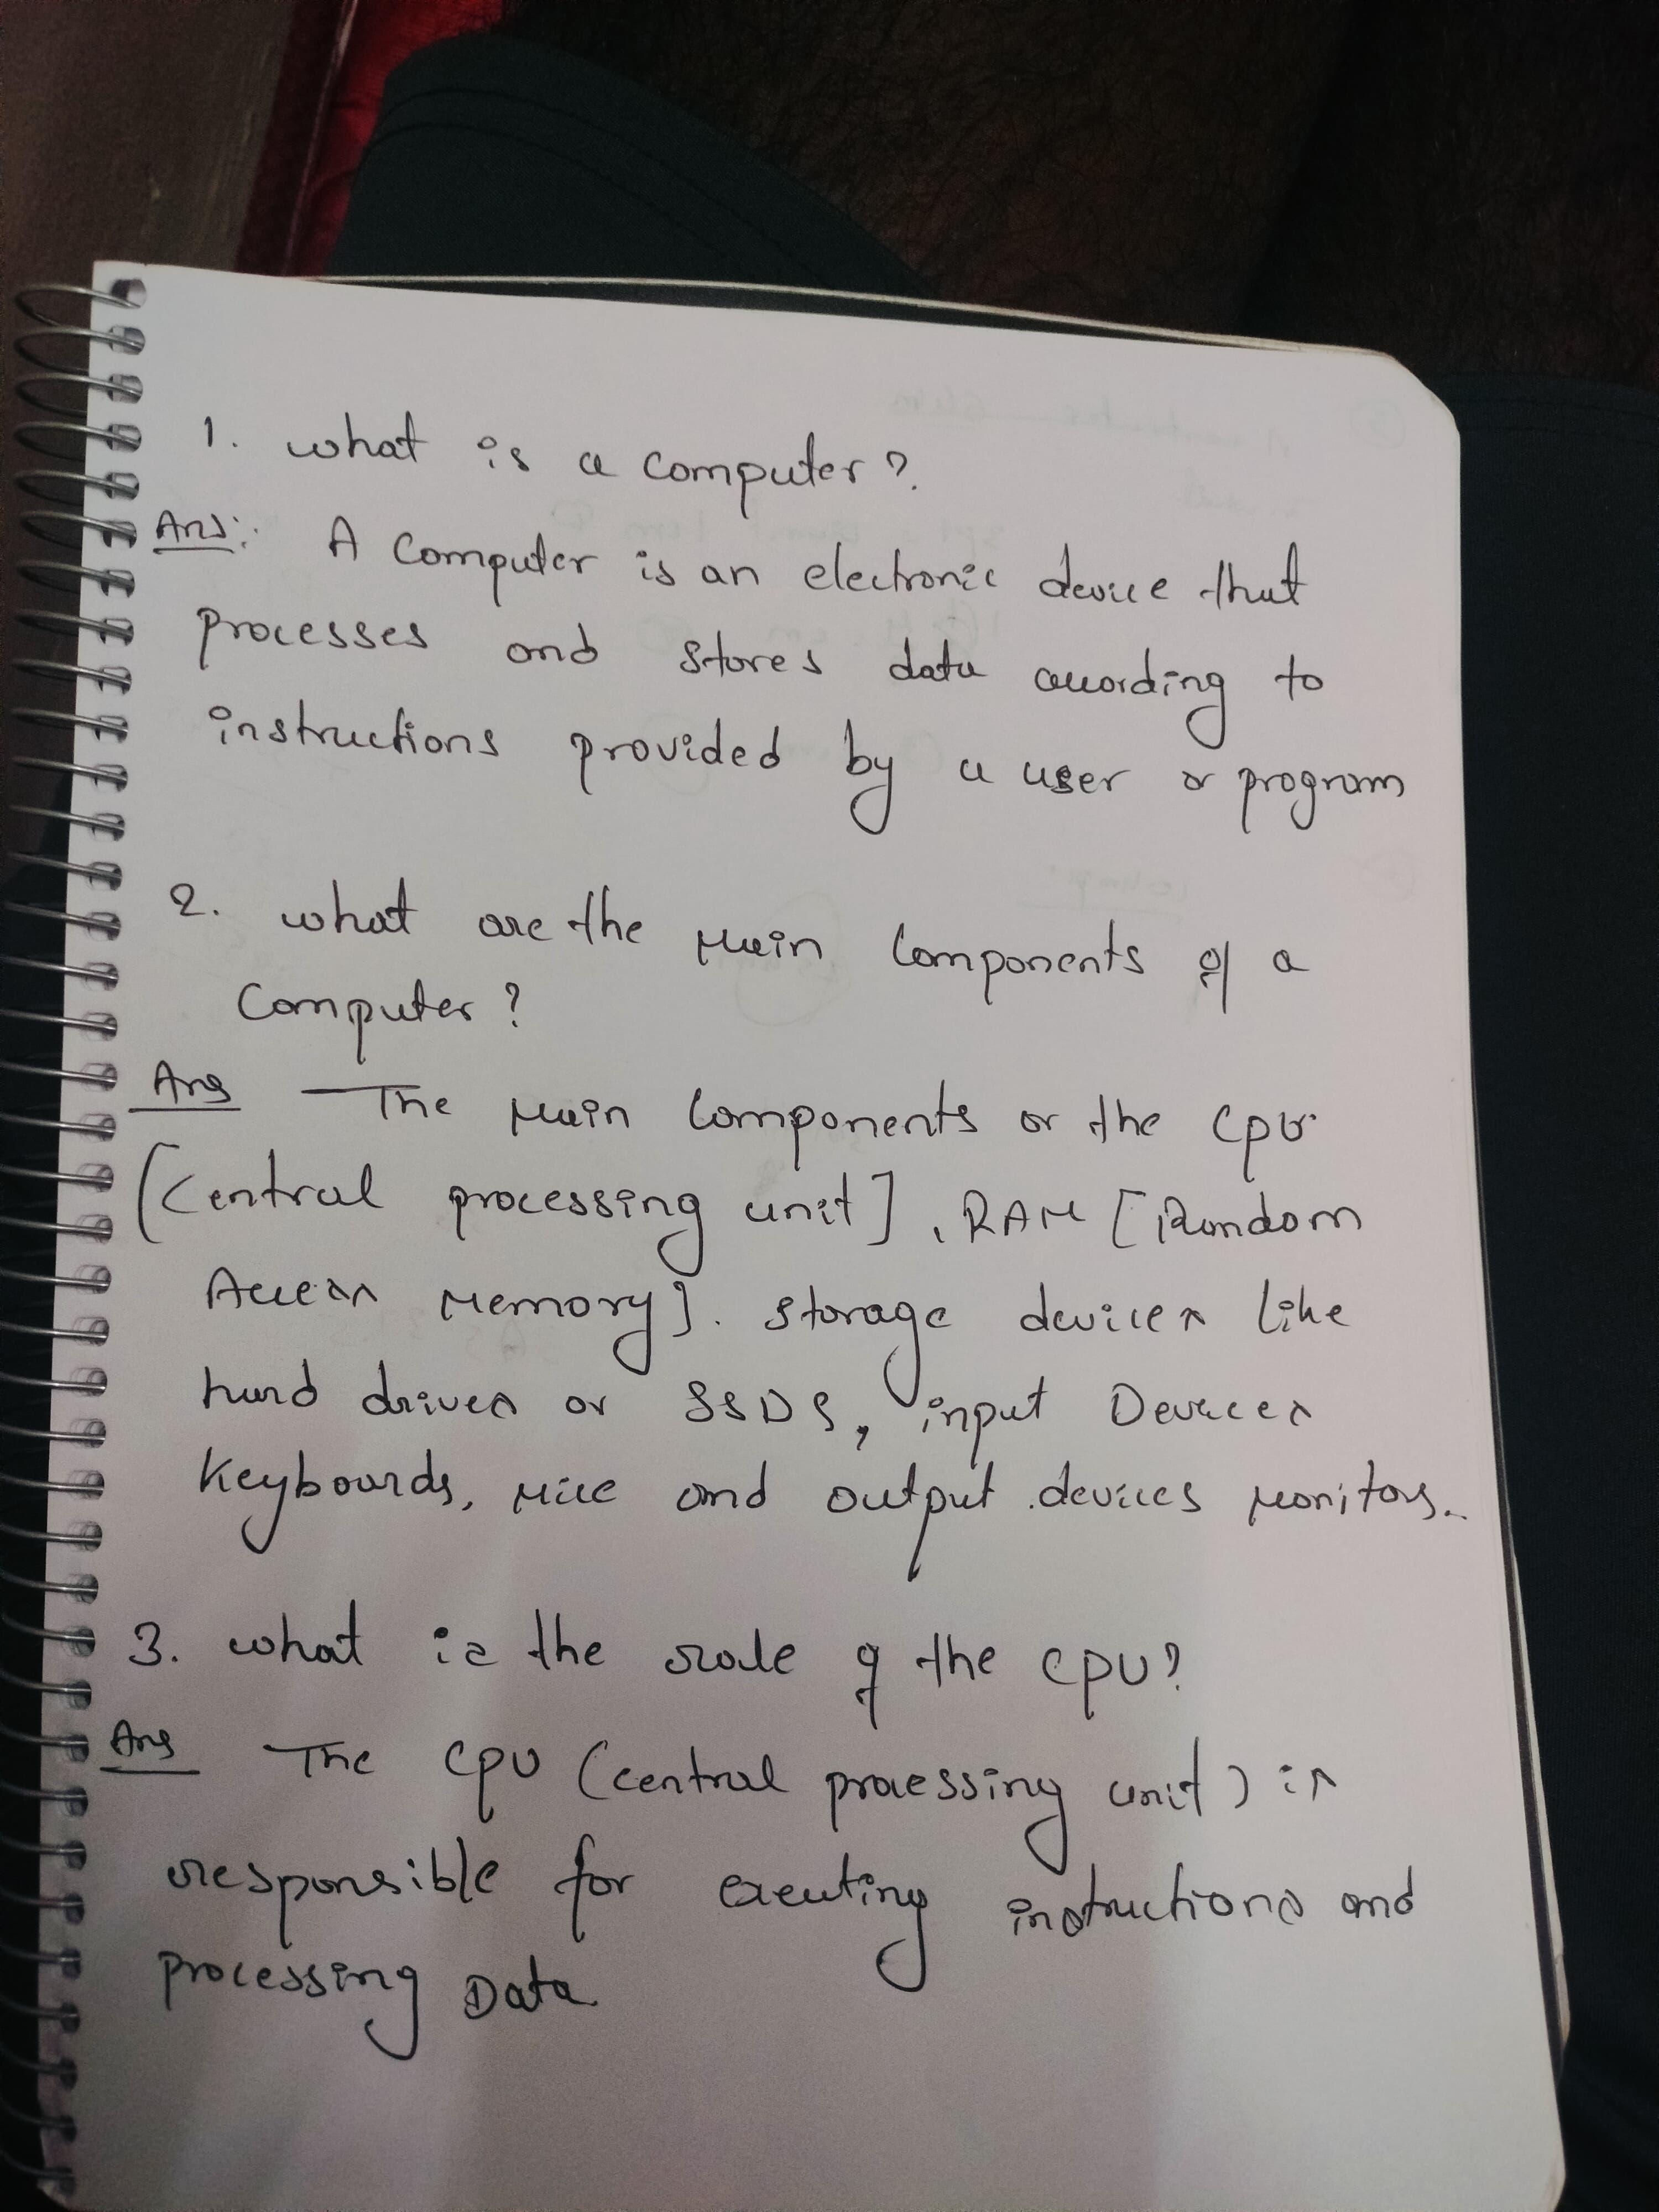 1. what is a computer?
Ans:. A Computer is an electronic device that
processes and stores data according to
instructions provided by a user or program
2. what are the Main Components of a
Computer?
Ans The Main Components or the CPU
[Central processing unit], RAM [Random
Access Memory]. storage devices like
hard drives or SSDS, input Devices
Keyboards, Mice and output devices Monitors.
3. what is the role of the CPU?
Ans The CPU (central processing unit) is
responsible for executing instructions and
processing Data